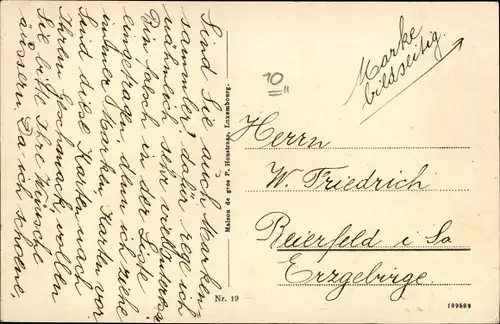 Sind Sie auch Marken-
sammler? dafür rege ich
nähmlich sehr
Bin falsch in der Liste
eingetragen, denn ich ziehe
immer Marken, Karten vor
Sind diese Karten nach
Ihren Geschmack, wollen
Sie bitte Ihre Wünsche
äussern. Da ich schöne,
Maison de gros P. Houstraas, Luxembourg.
Nr. 19
10
Marke
bildseitig.
Herrn
W. Friedrich
Beierfeld i Sa
Erzgebirge.
199589